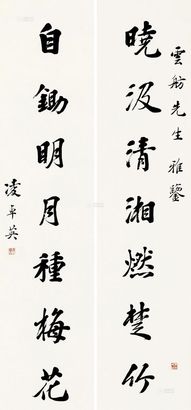 雲舫先生雅鑒
曉汲清湘燃楚竹
自鋤明月種梅花
凌卓英